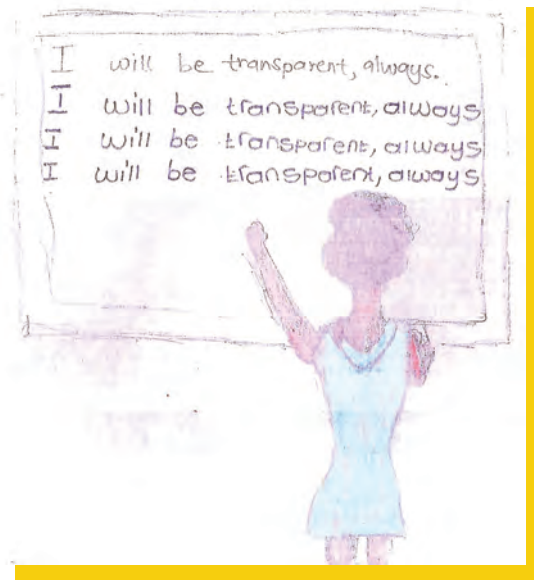 I will be transparent, always.
I will be transparent, always
I will be transparent, always
I will be transparent, always